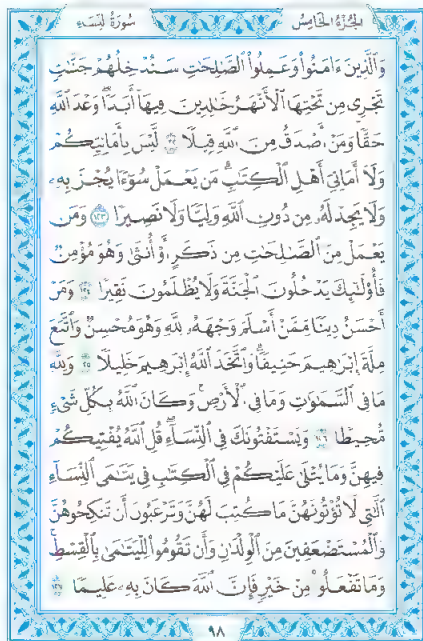 الجزء الخامس
سورة النساء
وَالَّذِينَ ءَامَنُوا۟ وَعَمِلُوا۟ الصَّٰلِحَٰتِ سَنُدْخِلُهُمْ جَنَّٰتٍ
تَجْرِى مِن تَحْتِهَا الْأَنْهَٰرُ خَٰلِدِينَ فِيهَآ أَبَدًا وَعْدَ اللَّهِ
حَقًّا وَمَنْ أَصْدَقُ مِنَ اللَّهِ قِيلًا ١٢٢ لَّيْسَ بِأَمَانِيِّكُمْ
وَلَآ أَمَانِىِّ أَهْلِ الْكِتَٰبِ مَن يَعْمَلْ سُوٓءًا يُجْزَ بِهِ
وَلَا يَجِدْ لَهُ مِن دُونِ اللَّهِ وَلِيًّا وَلَا نَصِيرًا ١٢٣ وَمَن
يَعْمَلْ مِنَ الصَّٰلِحَٰتِ مِن ذَكَرٍ أَوْ أُنثَىٰ وَهُوَ مُؤْمِنٌ
فَأُو۟لَٰٓئِكَ يَدْخُلُونَ الْجَنَّةَ وَلَا يُظْلَمُونَ نَقِيرًا ١٢٤ وَمَنْ
أَحْسَنُ دِينًا مِّمَّنْ أَسْلَمَ وَجْهَهُ لِلَّهِ وَهُوَ مُحْسِنٌ وَاتَّبَعَ
مِلَّةَ إِبْرَٰهِيمَ حَنِيفًا وَاتَّخَذَ اللَّهُ إِبْرَٰهِيمَ خَلِيلًا ١٢٥ وَلِلَّهِ
مَا فِى السَّمَٰوَٰتِ وَمَا فِى الْأَرْضِ وَكَانَ اللَّهُ بِكُلِّ شَىْءٍ
مُّحِيطًا ١٢٦ وَيَسْتَفْتُونَكَ فِى النِّسَآءِ قُلِ اللَّهُ يُفْتِيكُمْ
فِيهِنَّ وَمَا يُتْلَىٰ عَلَيْكُمْ فِى الْكِتَٰبِ فِى يَتَٰمَى النِّسَآءِ
الَّٰتِى لَا تُؤْتُونَهُنَّ مَا كُتِبَ لَهُنَّ وَتَرْغَبُونَ أَن تَنكِحُوهُنَّ
وَالْمُسْتَضْعَفِينَ مِنَ الْوِلْدَٰنِ وَأَن تَقُومُوا۟ لِلْيَتَٰمَىٰ بِالْقِسْطِ
وَمَا تَفْعَلُوا۟ مِنْ خَيْرٍ فَإِنَّ اللَّهَ كَانَ بِهِ عَلِيمًا ١٢٧
٩٨